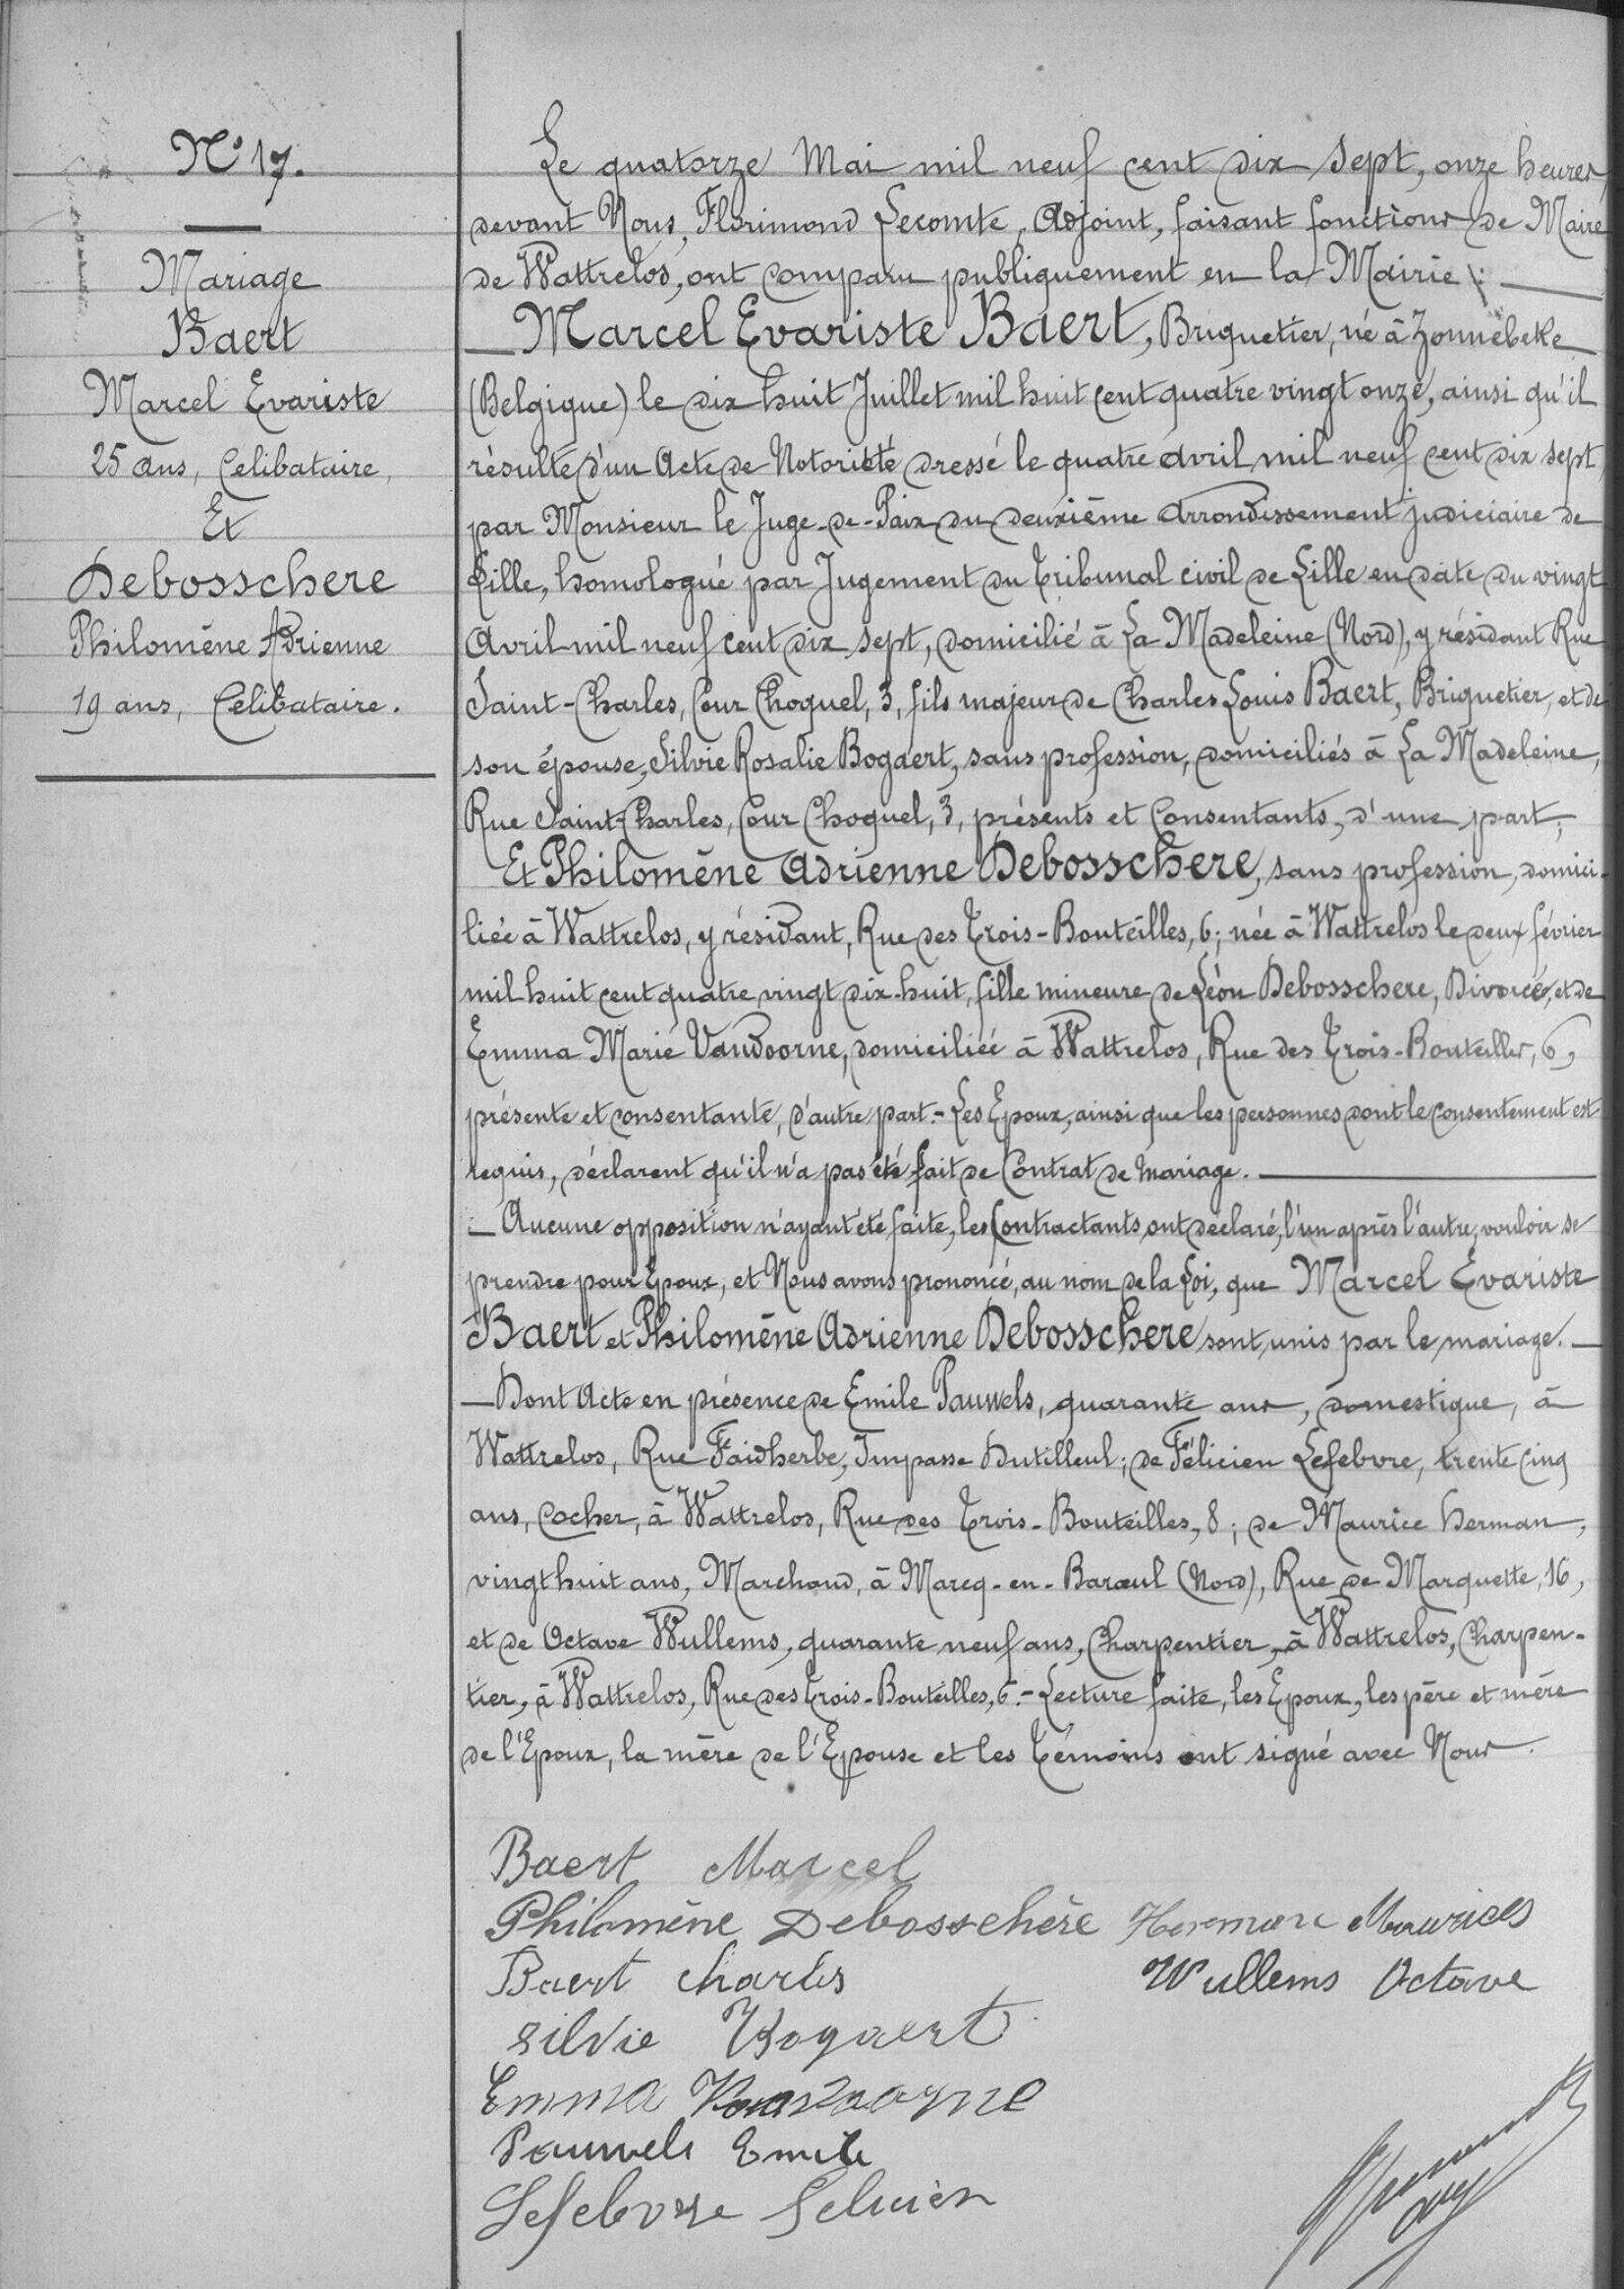 N° 17.
Mariage
Baert
Marcel Evariste
25 ans, Celibataire,
Et
Debosschere
Philomène Adrienne
19 ans, Celibataire.
Le quatorze Mai mil neuf cent dix sept, onze heures,
devant Nous, Florimond Lecomte, Adjoint, faisant fonctions de Maire
de Wattrelos, ont comparu publiquement en la Mairie :
Marcel Evariste Baert, Briquetier, né à Zonnebeke
(Belgique) le dix huit Juillet mil huit cent quatre vingt onze, ainsi qu'il
résulte d'un Acte de Notoriété dressé le quatre Avril mil neuf cent dix sept
par Monsieur le Juge-de-Paix du deuxième Arrondissement judiciaire de
Lille, homologué par Jugement du Tribunal civil de Lille en date du vingt
Avril mil neuf cent dix sept, domicilié à La Madeleine (Nord), y résidant Rue
Saint-Charles, Cour Choquel, 3, fils majeur de Charles Louis Baert, Briquetier, et de
son épouse, Silvie Rosalie Bogaert, sans profession, domiciliés à La Madeleine,
Rue Saint-Charles, Cour Choquel, 3, présents et Consentants, d'une part;
Et Philomène Adrienne Debosschere, sans profession, domici-
liée à Wattrelos, y résidant, Rue des Trois-Bouteilles, 6; née à Wattrelos le deux février
mil huit cent quatre vingt dix-huit, fille mineure de Léon Debosschere, Divorcé, et de
Emma Marie Vandoorne, domiciliée à Wattrelos, Rue des Trois-Bouteilles, 6,
présente et consentante, d'autre part.- Les Epoux, ainsi que les personnes dont le consentement est
requis, déclarent qu'il n'a pas été fait de Contrat de Mariage.
- Aucune opposition n'ayant été faite, les Contractants ont déclaré, l'un après l'autre, vouloir se
prendre pour Epoux, et Nous avons prononcé, au nom de la Loi, que Marcel Evariste
Baert et Philomène Adrienne Debosschere sont unis par le mariage.
- Dont Acte en présence de Emile Pauwels, quarante ans, domestique, à
Wattrelos, Rue Faidherbe, Impasse Dutilleul; de Félicien Lefebvre, trente cinq
ans, Cocher, à Wattrelos, Rue des Trois-Bouteilles, 8; de Maurice Herman,
vingt huit ans, Marchand, à Marcq-en-Barœul (Nord), Rue de Marquette, 16,
et de Octave Wullems, quarante neuf ans, Charpentier, à Wattrelos, Charpen-
tier, à Wattrelos, Rue des Trois-Bouteilles, 6.- Lecture faite, les Epoux, les père et mère
de l'Epoux, la mère de l'Epouse et les Témoins ont signé avec Nous.
Baert Marcel
Philomène Debosschère Herman Maurices
Baert Charles Wullems Octave
Silvie Bogaert
Emma Vandoorne
Pauwels Emile
Lefebvre Felicien